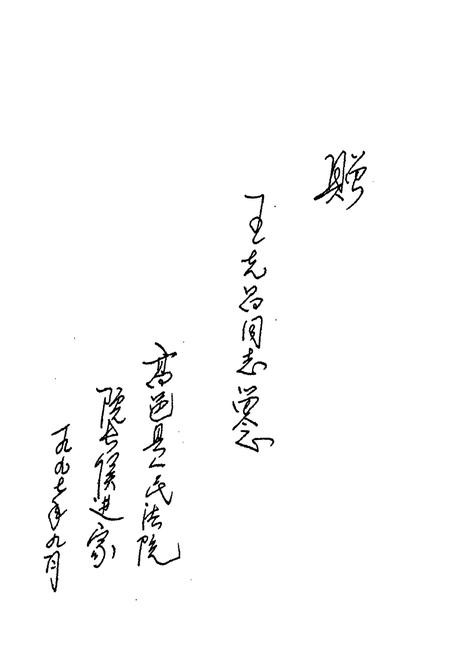 赠
王克昌同志留念
高邑县人民法院
院长侯进家
一九九七年九月